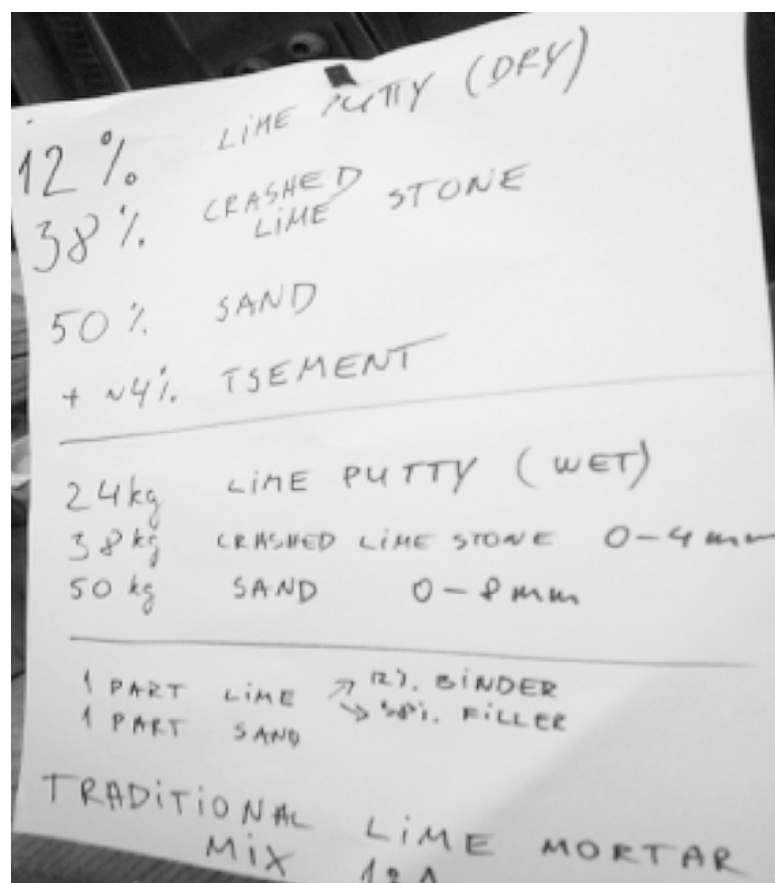 12% LIME PUTTY (DRY)
38% CRASHED LIME STONE
50% SAND
+ ~4% TSEMENT
24kg LIME PUTTY (WET)
38kg CRASHED LIME STONE 0-4mm
50 kg SAND 0-8mm
1 PART LIME ↗ 12% BINDER
1 PART SAND ↘ 38% FILLER
TRADITIONAL LIME MORTAR
MIX